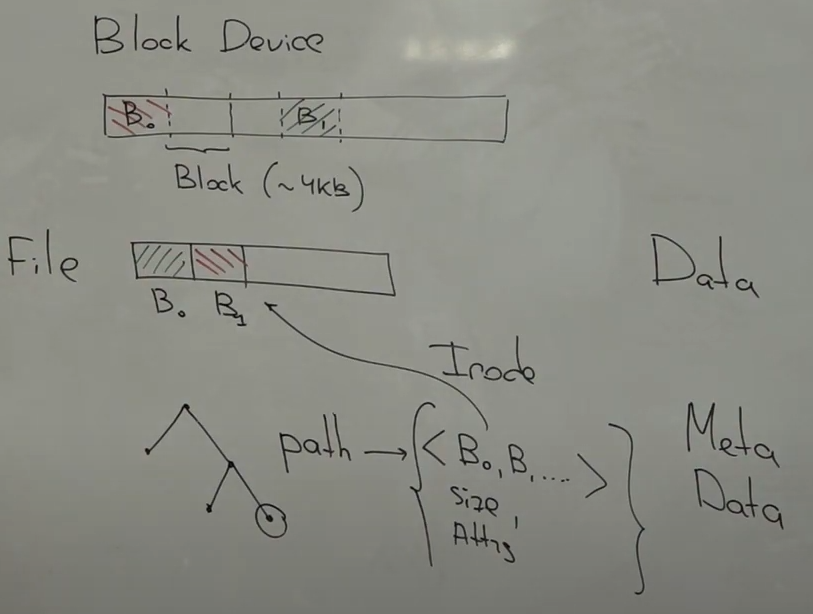 Block Device
B₀ B₁
Block (~4KB)
File
B₀ B₁
Data
Inode
path → { < B₀, B₁, .... > }
Size,
Attrs
Meta
Data